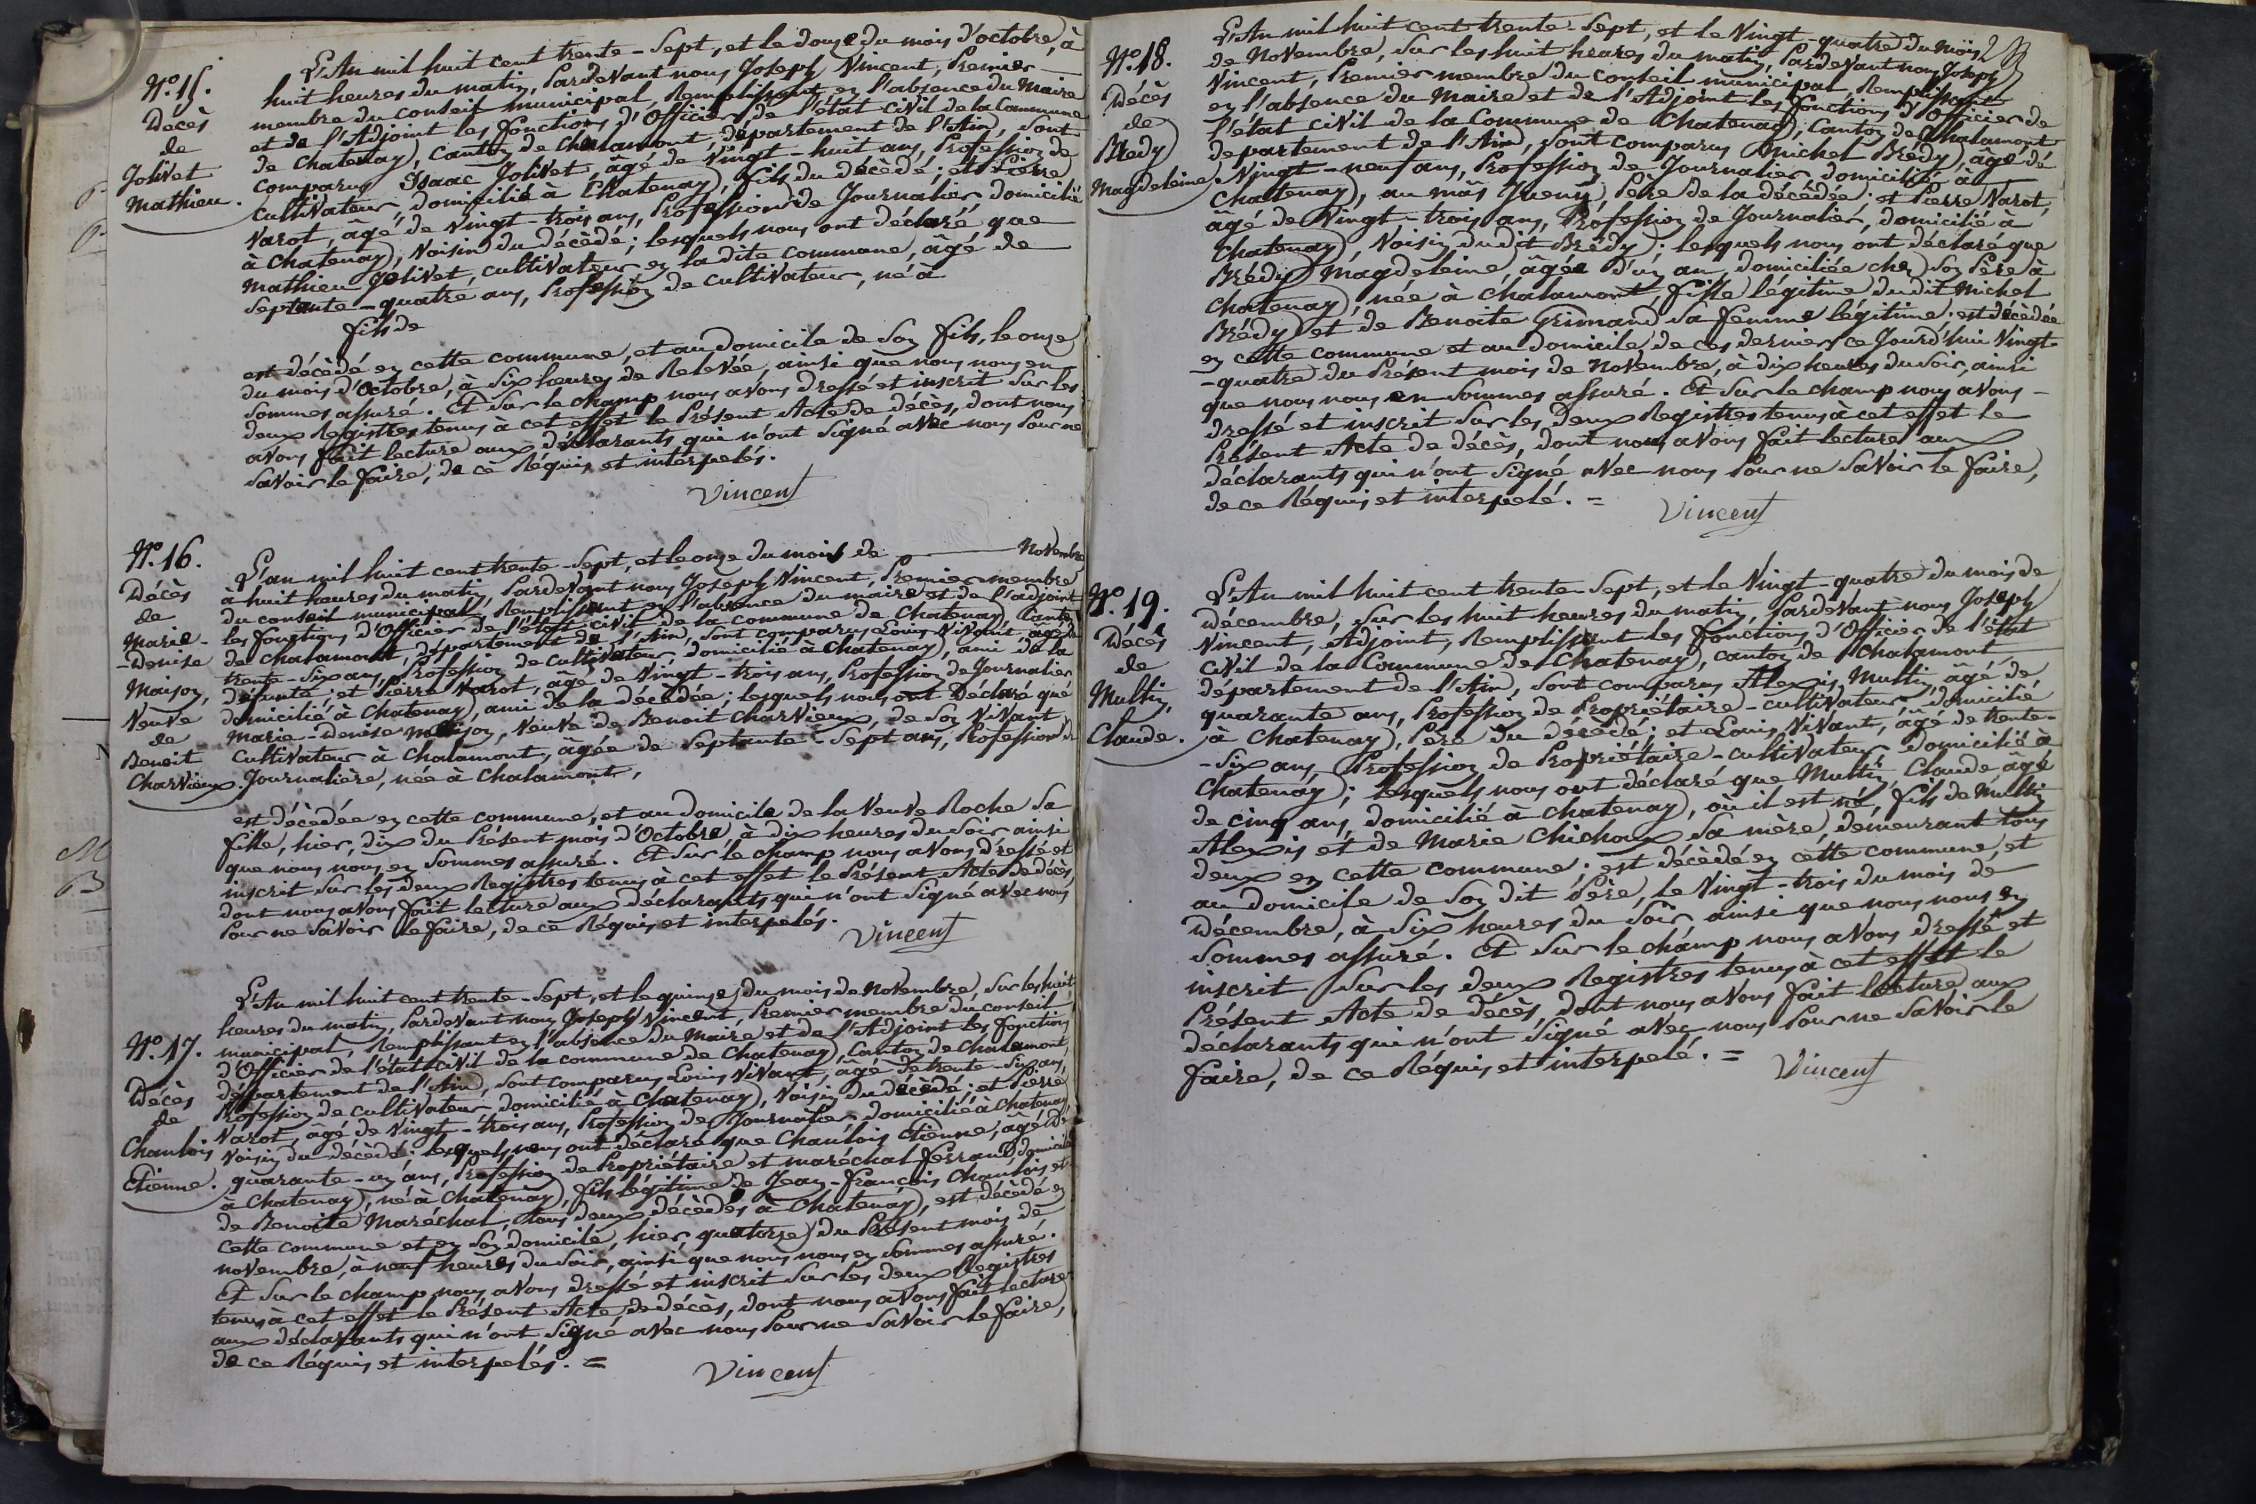 N°. 15.
Décès
de
Jolivet
Mathieu.
L'An mil huit cent trente-Sept, et le douze du mois d'octobre, à
huit heures du matin, Pardevant nous Joseph Vincent, Premier
membre du conseil municipal, Remplissant en l'absence du Maire
et de l'Adjoint les fonctions d'Officier de l'état civil de la Commune
de Chatenay, canton de Chalamont, département de l'Ain, Sont
comparus Isaac Jolivet, âgé de Vingt-huit ans, Profession de
Cultivateur, domicilié à Chatenay, fils du décèdé; et Pierre
Varot, agé de Vingt-trois ans, Profession de Journalier, domicilié
à Chatenay, Voisin du décèdé; lesquels nous ont déclaré que
Mathieu Jolivet, cultivateur en la dite commune, âgé de
Septante-quatre ans, Profession de cultivateur, né à
fils de
est décèdé en cette commune, et au domicile de Son fils, le onze
du mois d'Octobre, à Six heures de Relevée, ainsi que nous nous en
Sommes assuré. Et Sur le champ nous avons dressé et inscrit Sur les
deux Registres tenus à cet effet le Présent Acte de décès, dont nous
avons fait lecture aux déclarants qui n'ont Signé avec nous Pour ne
Savoir le faire, de ce Réquis et interpelés.
Vincent
N°. 16.
Décès
de
Marie-
-Denise
Maison,
Veuve
de
Benoit
Charvieux.
L'an mil huit cent trente-Sept, et le onze du mois de Novembre
à huit heures du matin, Pardevant nous Joseph Vincent, Premier membre
du conseil municipal Remplissant en l'absence du maire et de l'adjoint
les fonctions d'Officier de l'état civil de la commune de Chatenay, Canton
de Chalamont, département de l'Ain, Sont comparus Louis Vivant, agé de
trente-Six ans, Profession de Cultivateur, domicilié à Chatenay, ami de la
défunte; et Pierre Varot, âgé de Vingt-trois ans, Profession de Journalier,
domicilié à Chatenay, ami de la décèdée; lesquels nous ont Déclaré que
Marie-Denise Maison, Veuve de Benoit Charvieux, de Son Vivant
Cultivateur à Chalamont, âgée de Septante-Sept ans, Profession de
Journalière, née à Chalamont,
est décèdée en cette commune, et au domicile de la Veuve Roche Sa
fille, hier, dix du Présent mois d'Octobre, à dix heures du Soir, ainsi
que nous nous en Sommes assuré. Et Sur le champ nous avons dressé et
inscrit Sur les deux Registres tenus à cet effet le Présent Acte de décès,
dont nous avons fait lecture aux déclarants qui n'ont Signé avec nous
Pour ne Savoir le faire, de ce Réquis et interpelés.
Vincent
N°. 17.
Décès
de
Chanlois
Etienne.
L'An mil huit cent trente-Sept, et le quinze du mois de Novembre, Sur les huit
heures du matin, Pardevant nous Joseph Vincent, Premier membre du conseil
municipal, Remplissant en l'absence du Maire et de l'Adjoint les fonctions
d'Officier de l'état civil de la commune de Chatenay, Canton de Chalamont,
département de l'Ain, Sont comparus Louis Vivant, âgé de trente-Six ans,
Profession de cultivateur, domicilié à Chatenay, Voisin du décèdé; et Pierre
Varot, âgé de Vingt-trois ans, Profession de Journalier domicilié à Chatenay,
Voisin du décèdé; lesquels nous ont déclaré que Chanlois Etienne, âgé de
quarante-un ans, Profession de Propriétaire et maréchal ferrand domicilié
à Chatenay, né à Chatenay, fils légitime de Jean-François Chanlois et
de Benoite Maréchal, tous deux décèdés à Chatenay, est décèdé en
cette commune et en Son domicile, hier, quatorze du Présent mois de
novembre, à neuf heures du Soir, ainsi que nous nous en Sommes assuré.
Et Sur le champ nous avons dressé et inscrit Sur les deux Registres
tenus à cet effet le Présent Acte de décès, dont nous avons fait lecture
aux déclarants qui n'ont Signé avec nous Pour ne Savoir le faire,
de ce Réquis et interpelés. =
Vincent
N°. 18.
Décès
de
Brédy
Magdeleine.
L'An mil huit cent trente-Sept, et le Vingt-quatre du mois
de Novembre, Sur les huit heures du matin, Pardevant nous Joseph
Vincent, Premier membre du conseil municipal Remplissant
en l'absence du Maire et de l'Adjoint les fonctions d'Officier de
l'état civil de la Commune de Chatenay, Canton de Chalamont
departement de l'Ain, Sont comparus Michel Brédy, âgé de
Vingt-neuf ans, Profession de Journalier, domicilié à
Chatenay, au mas Juenu, Père de la décédée; et Pierre Varot,
âgé de Vingt-trois ans, Profession de Journalier, domicilié à
Chatenay, Voisin dudit Brédy; lesquels nous ont déclaré que
Brédy Magdeleine, âgée d'un an, domiciliée chez Son Père à
Chatenay, née à Chalamont, fille légitime dudit Michel
Brédy et de Benoite Grimand Sa femme légitime; est décèdée
en cette commune et au domicile de ces dernier, ce Jourd'hui Vingt-
-quatre du Présent mois de Novembre, à dix heures du Soir, ainsi
que nous nous en Sommes assuré. Et Sur le champ nous avons-
dressé et inscrit Sur les Deux Registres tenus à cet effet le
Présent Acte de décès, dont nous avons fait lecture aux
déclarants qui n'ont Signé avec nous Pour ne Savoir le faire,
de ce Réquis et interpelé. =
Vincent
N°. 19.
Décès
de
Multin,
Claude.
L'An mil huit cent trente-Sept, et le Vingt-quatre du mois de
Décembre, Sur les huit heures du matin, Pardevant nous Joseph
Vincent, Adjoint, Remplissant les fonctions d'Officier de l'état
civil de la Commune de Chatenay, canton de Chalamont
département de l'Ain, Sont comparus Alexis Multin, âgé de
quarante ans, Profession de Propriétaire-cultivateur, domicilié
à Chatenay, Père du décèdé; et Louis Vivant, âgé de trente-
-Six ans, Profession de Propriétaire-cultivateur domicilié à
Chatenay; lesquels nous ont déclaré que Multin, Claude agé
de cinq ans, domicilié à Chatenay, où il est né, fils de Multin
Alexis et de Marie Chichoux Sa mère, demeurant tous
deux en cette commune; est décèdé en cette commune, et
au domicile de Son dit Père, le Vingt-trois du mois de
Décembre, à Six heures du Soir ainsi que nous nous en
Sommes assuré. Et Sur le champ nous avons dressé et
inscrit Sur les deux Registres tenus à cet effet le
Présent Acte de décès, dont nous avons fait lecture aux
déclarants qui n'ont Signé avec nous Pour ne Savoir le
faire, de ce Réquis et interpelé. =
Vincent